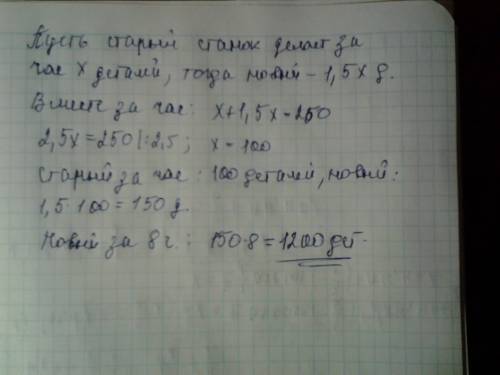 Пусть старый станок делает за
час x деталей, тогда новый – 1,5x д.
Вместе за час: x+1,5x=250
2,5x=250|:2,5; x=100
Старый за час: 100 деталей, новый:
1,5·100=150 д.
Новый за 8 ч.: 150·8=1200 дет.